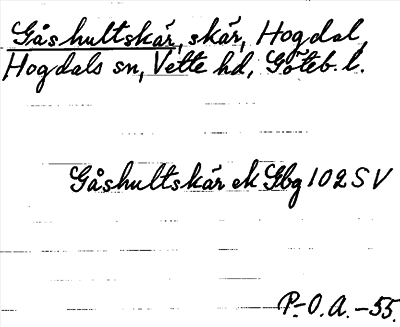 Gåshultskär, skär, Hogdal,
Hogdals sn, Vette hd, Göteb. l.
Gåshultskär ek Gbg 102 SV
P.-O. A. -55.